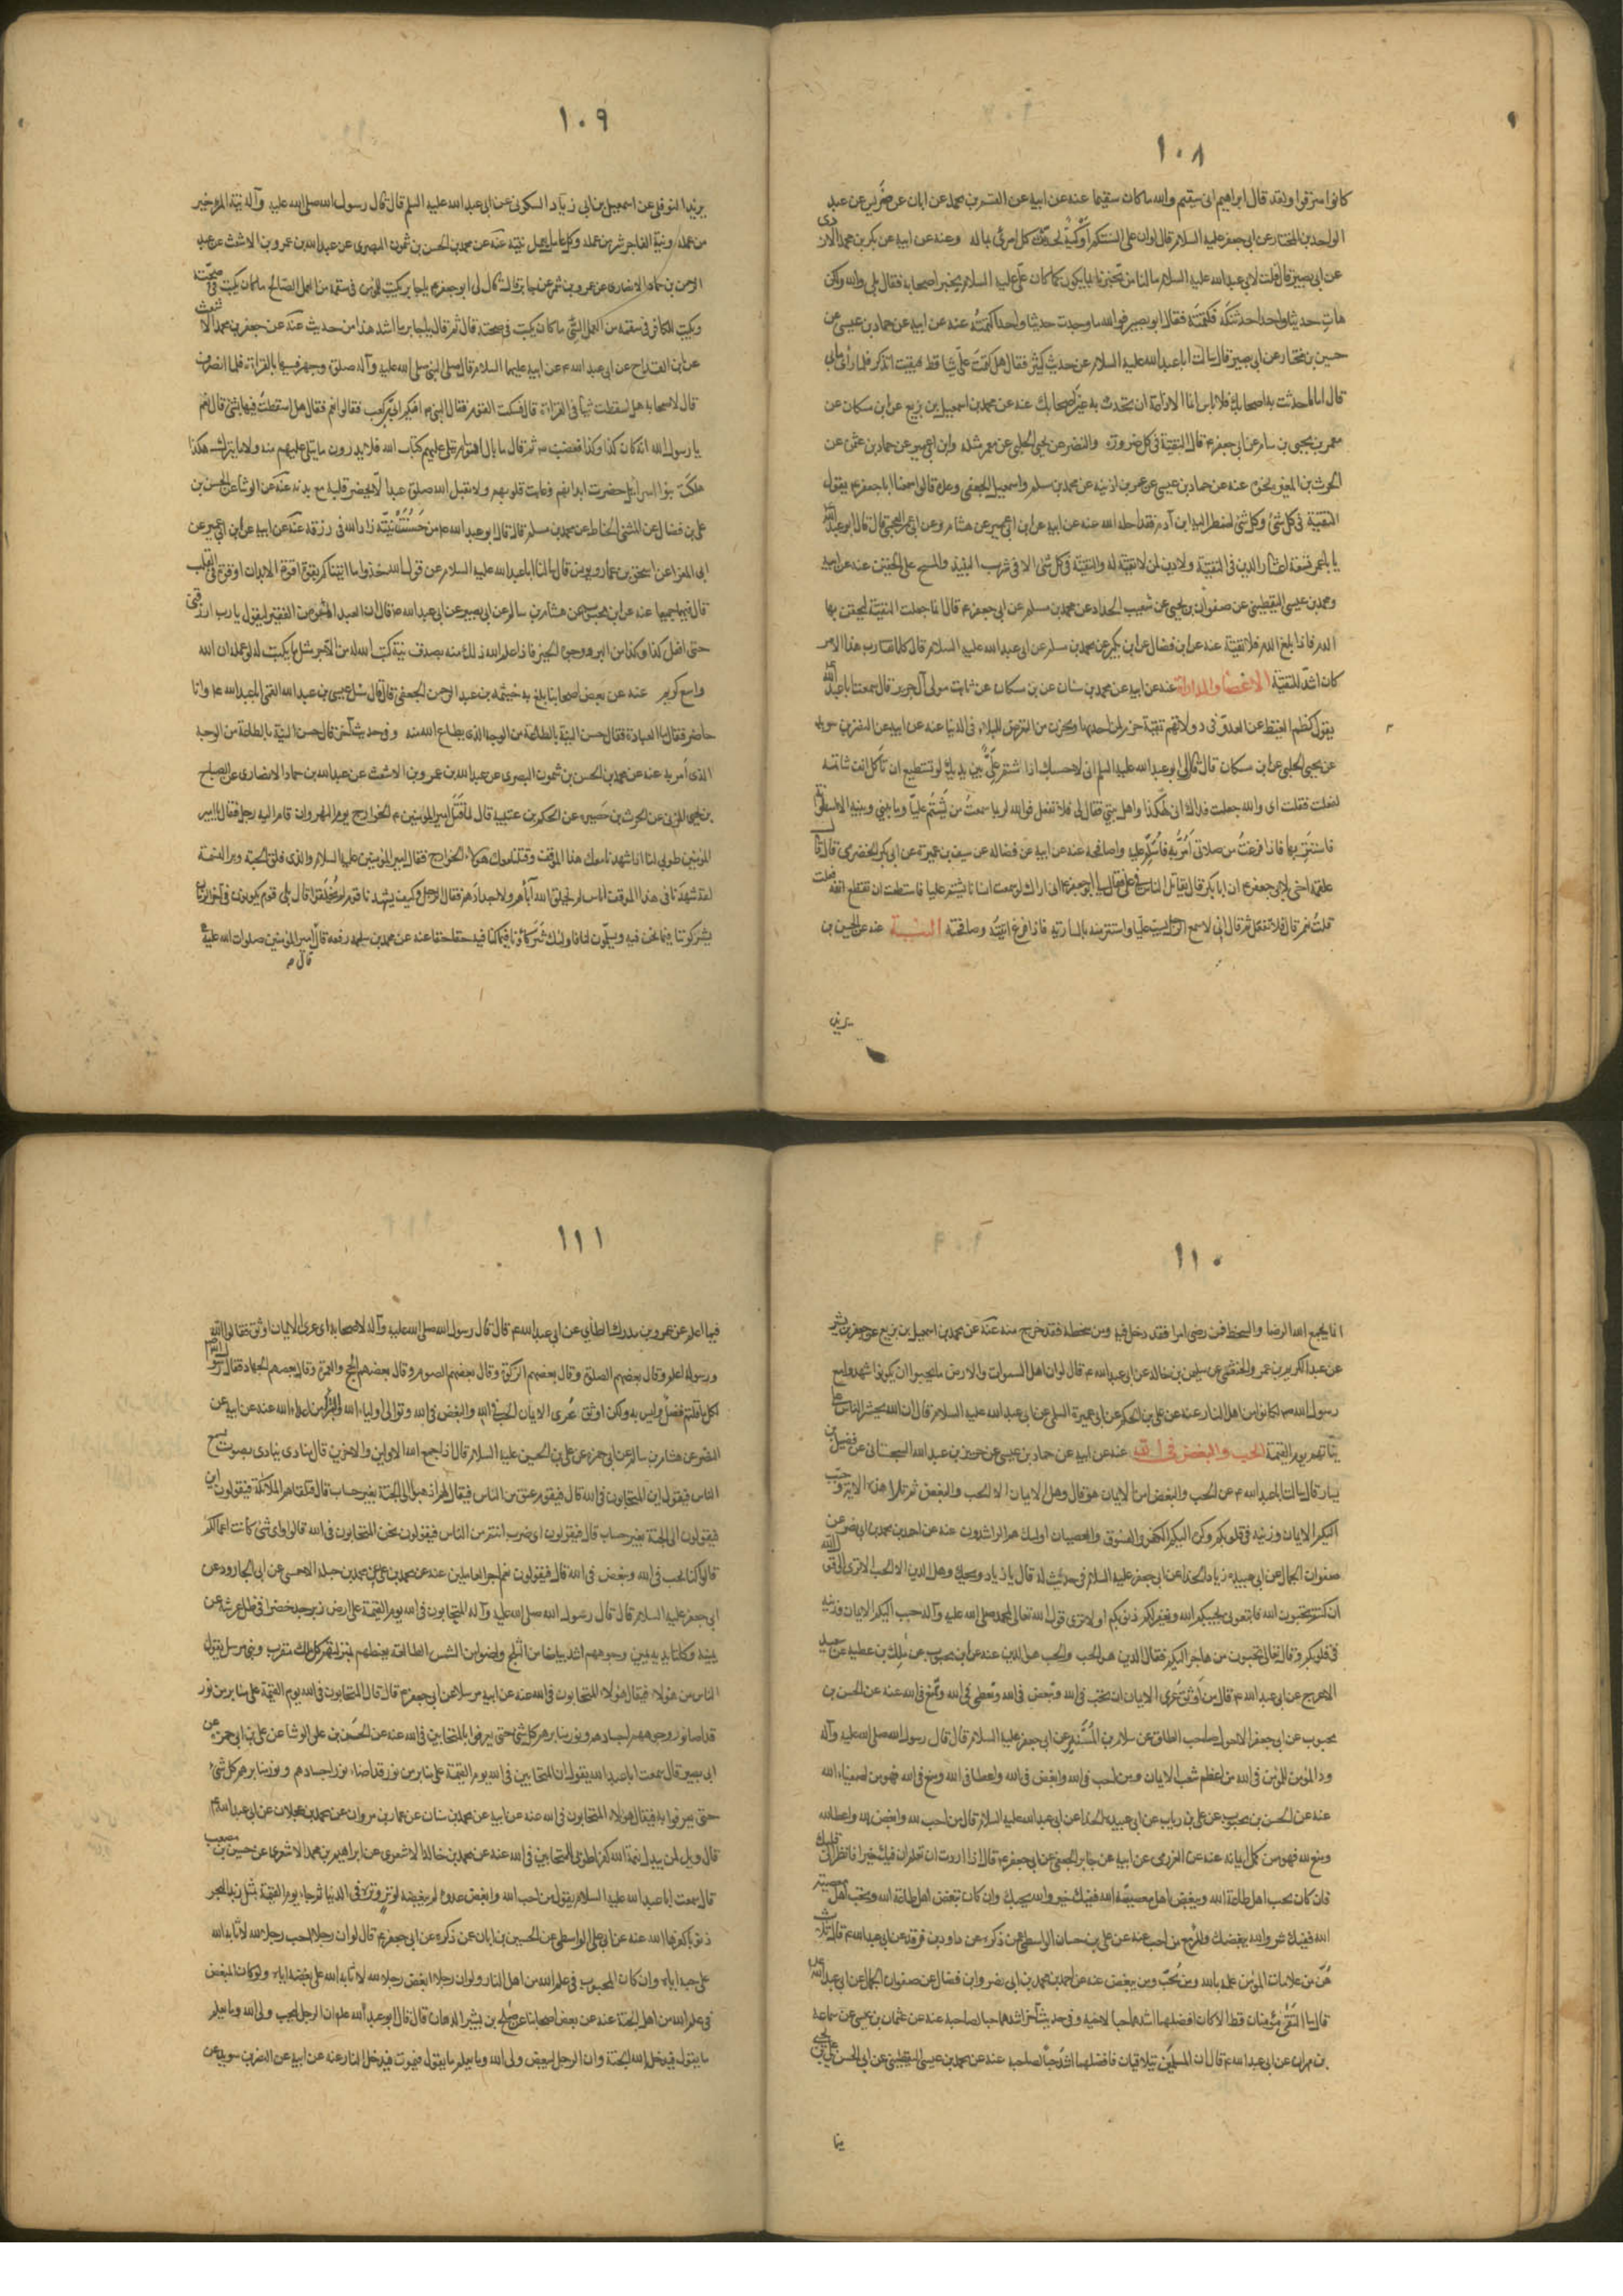 ١٠٨
كانوا سرقوا ولقد قال ابراهيم اني سقيم والله ما كان سقيما عنه عن ابيه عن القسم بن محمد عن ابان عن ضريس عن عبد
الواحد بن المختار عن ابي جعفر عليه السلام قال لو ان على السنتكم اوكية لحدثت كل امرئ بما له وعنه عن ابيه عن بكر بن محمد الازدى
عن ابي بصير قال قلت لابي عبد الله عليه السلام ما لنا من تخبرنا بما يكون كما كان على عليه السلام يخبر اصحابه فقال بلى والله ولكن
هات حديثا واحدا حدثتكه فكتمته فقال ابو بصير فوالله ما وجدت حديثا واحدا كتمته عنه عن ابيه عن حماد بن عيسى عن
حسين بن مختار عن ابي بصير قال سالت ابا عبد الله عليه السلام عن حديث كثير فقال هل كتمت على شيا قط فبقيت اتذكر فلما راى ما بي
قال اما ما حدثت به اصحابك فلا باس انما الاذاعة ان تحدث به غير اصحابك عنه عن محمد بن اسمعيل بن بزيع عن ابن مسكان عن
معمر بن يحيى بن سام عن ابي جعفر ع قال التقية في كل ضرورة والنضر عن يحيى الحلبي عن معمر مثله وابن ابي عمير عن حماد بن عثمن عن
الحرث بن المغيرة نحوه عنه عن حماد بن عيسى عن عمر بن اذينه عن محمد بن مسلم واسمعيل الجعفى وعدة قالوا سمعنا ابا جعفر ع يقول
التقية في كل شئ وكل شئ اضطر اليه ابن آدم فقد احله الله عنه عن ابيه عن ابن ابي عمير عن هشام وعن ابي عمر العجمي قال قال ابو عبد الله
يا با عمر تسعة اعشار الدين في التقية ولا دين لمن لا تقية له والتقية في كل شئ الا في شرب النبيذ والمسح على الخفين عنه عن ابيه
ومحمد بن عيسى اليقطينى عن صفوان بن يحيى عن شعيب الحداد عن محمد بن مسلم عن ابي جعفر ع قال انما جعلت التقية ليحقن بها
الدم فاذا بلغ الدم فلا تقية عنه عن ابن فضال عن ابن بكير عن محمد بن مسلم عن ابي عبد الله عليه السلام قال كلما تقارب هذا الامر
كان اشد للتقية الاغضاء والمداراة عنه عن ابيه عن محمد بن سنان عن بن مسكان عن ثابت مولى آل جرير قال سمعت ابا عبد الله
يقول كظم الغيظ عن العدو في دولاتهم تقية حزم لمن اخذ بها وتحرز من التعرض للبلاء في الدنيا عنه عن ابيه عن النضر بن سويد
عن يحيى الحلبي عن ابن مسكان قال قال لي ابو عبد الله عليه السلم اني لاحسبك اذا شتم على بين يديك لو تستطيع ان تاكل انف شاتمه
لفعلت فقلت اى والله جعلت فداك اني لهكذا واهل بيتي فقال لي فلا تفعل فوالله لربما سمعت من يشتم عليا وما بيني وبينه الا اسطوانة
فاستتر بها فاذا فرغت من صلاتي امر به فاسلم عليه واصافحه عنه عن ابيه عن فضاله عن سيف بن عميرة عن ابي بكر الحضرمى قال قال
علقمه اخي لابي جعفر ع ان ابا بكر قال يقاتل الناس في على فقال لي ابو جعفر ع اني اراك لو سمعت انسانا يشتم عليا فاستطعت ان تقطع انفه فعلت
قلت نعم قال فلا تفعل ثم قال اني لاسمع الرجل يسب عليا واستتر منه بالسارية فاذا فرغ اتيته وصافحته النية عنه عن الحسين بن
يزيد
١٠٩
يزيد النوفلى عن اسمعيل بن ابي زياد السكونى عن ابي عبد الله عليه السلم قال قال رسول الله صلى الله عليه وآله نية المؤمن خير
من عمله ونية الفاجر شر من عمله وكل عامل يعمل بنيته عنه عن محمد بن الحسن بن شمون البصرى عن عبد الله بن عمرو بن الاشعث عن عبد
الرحمن بن حماد الانصارى عن عمرو بن شمر عن جابر قال قال لي ابو جعفر ع يا جابر يكتب للمؤمن في سقمه من العمل الصالح ما كان يكتب في صحته
ويكتب للكافر في سقمه من العمل السيئ ما كان يكتب في صحته قال ثم قال يا جابر ما اشد هذا من حديث عنه عن جعفر بن محمد الاشعث
عن ابن القداح عن ابي عبد الله ع عن ابيه عليهما السلام قال صلى النبي صلى الله عليه وآله صلوة وجهر فيها بالقراءة فلما انصرف
قال لاصحابه هل اسقطت شيا في القراءة قال فسكت القوم فقال النبي افيكم ابي بن كعب فقالوا نعم فقال هل اسقطت فيها بشئ قال نعم
يا رسول الله انه كان كذا وكذا فغضب ثم قال ما بال اقوام يتلى عليهم كتاب الله فلا يدرون ما يتلى عليهم منه ولا ما يترك هكذا
هلكت بنو اسرائيل حضرت ابدانهم وغابت قلوبهم ولا يقبل الله صلوة عبد لا يحضر قلبه مع بدنه عنه عن الوشا عن الحسن بن
على بن فضال عن المثنى الحناط عن محمد بن مسلم قال قال ابو عبد الله ع من حسنت نيته زاد الله في رزقه عنه عن ابيه عن ابن ابي عمير عن
ابي المغرا عن اسحق بن عمار ويونس قال سالنا ابا عبد الله عليه السلام عن قول الله خذوا ما اتيناكم بقوة اقوة الابدان او قوة في القلب
قال فيهما جميعا عنه عن ابن محبوب عن هشام بن سالم عن ابي بصير عن ابي عبد الله ع قال ان العبد المؤمن الفقير ليقول يا رب ارزقني
حتى افعل كذا وكذا من البر ووجوه الخير فاذا علم الله ذلك منه بصدق نية كتب الله له من الاجر مثل ما يكتب له لو عمله ان الله
واسع كريم عنه عن بعض اصحابنا بلغ به خيثمه بن عبد الرحمن الجعفى قال سئل عيسى بن عبد الله القمى ابا عبد الله ع وانا
حاضر فقال ما العبادة فقال حسن النية بالطاعة من الوجه الذى يطاع الله منه وفي حديث آخر قال حسن النية بالطاعة من الوجه
الذى امر به عنه عن محمد بن الحسن بن شمون البصرى عن عبد الله بن عمرو بن الاشعث عن عبد الله بن حماد الانصارى عن الصباح
بن يحيى المزنى عن الحرث بن حصيره عن الحكم بن عتيبه قال لما قتل امير المؤمنين ع الخوارج يوم النهروان قام اليه رجل فقال يا امير
المؤمنين طوبى لنا اذا شهدنا معك هذا الموقف وقتلنا معك هؤلاء الخوارج فقال امير المؤمنين عليه السلام والذى فلق الحبة وبرا النسمة
لقد شهدنا في هذا الموقف اناس لم يخلق الله آباءهم ولا اجدادهم فقال الرجل وكيف يشهدنا قوم لم يخلقوا قال بلى قوم يكونون في آخر الزمان
يشركوننا فيما نحن فيه ويسلمون لنا فاولئك شركاؤنا فيما كنا فيه حقا حقا عنه عن محمد بن سلمه رفعه قال امير المؤمنين صلوات الله عليه
قال ع
١١٠
انما يجمع الله الرضا والسخط فمن رضى امرا فقد دخل فيه ومن سخطه فقد خرج منه عنه عن محمد بن اسمعيل بن بزيع عن جعفر بن بشير
عن عبد الكريم بن عمرو الخثعمى عن سليمن بن خالد عن ابي عبد الله ع قال لو ان اهل السموات والارض لم يحبوا ان يكونوا شهدوا مع
رسول الله ص لكانوا من اهل النار عنه عن على بن الحكم عن ابي عميرة السلمى عن ابي عبد الله عليه السلام قال ان الله يحشر الناس على
نياتهم يوم القيمة الحب والبغض في الله عنه عن ابيه عن حماد بن عيسى عن حريز بن عبد الله السجستانى عن فضيل بن
يسار قال سالت ابا عبد الله ع عن الحب والبغض امن الايمان هو قال وهل الايمان الا الحب والبغض ثم تلا هذه الاية وحبب
اليكم الايمان وزينه في قلوبكم وكره اليكم الكفر والفسوق والعصيان اولئك هم الراشدون عنه عن احمد بن محمد بن ابي نصر عن
صفوان الجمال عن ابي عبيده زياد الحذا عن ابي جعفر عليه السلام في حديث له قال يا زياد ويحك وهل الدين الا الحب الا ترى الى قول الله
ان كنتم تحبون الله فاتبعوني يحببكم الله ويغفر لكم ذنوبكم او لا ترى قول الله تعالى لمحمد صلى الله عليه وآله حبب اليكم الايمان وزينه
في قلوبكم وقال تعالى يحبون من هاجر اليكم فقال الدين هو الحب والحب هو الدين عنه عن ابن محبوب عن ملك بن عطيه عن سعيد
الاعرج عن ابي عبد الله ع قال من اوثق عرى الايمان ان تحب في الله وتبغض في الله وتعطى في الله وتمنع في الله عنه عن الحسن بن
محبوب عن ابي جعفر الاحول صاحب الطاق عن سلام بن المستنير عن ابي جعفر عليه السلام قال قال رسول الله صلى الله عليه وآله
ود المؤمن للمؤمن في الله من اعظم شعب الايمان ومن احب في الله وابغض في الله واعطا في الله ومنع في الله فهو من اصفياء الله
عنه عن الحسن بن محبوب عن على بن رياب عن ابي عبيده الحذا عن ابي عبد الله عليه السلام قال من احب لله وابغض لله واعطا لله
ومنع لله فهو من كمل ايمانه عنه عن العزرمى عن ابيه عن جابر الجعفى عن ابي جعفر ع قال اذا اردت ان تعلم ان فيك خيرا فانظر الى قلبك
فان كان يحب اهل طاعة الله ويبغض اهل معصيته الله ففيك خير والله يحبك وان كان تبغض اهل طاعة الله وتحب اهل معصيته
الله ففيك شر والله يبغضك والمرء مع من احب عنه عن على بن حسان الواسطى عمن ذكره عن داود بن فرقد عن ابي عبد الله ع قال ثلث
هن من علامات المؤمن علمه بالله ومن يحب ومن يبغض عنه عن احمد بن محمد بن ابي نصر وابن فضال عن صفوان الجمال عن ابي عبد الله
قال ما التقى مؤمنان قط الا كان افضلهما اشدهما حبا لاخيه وفي حديث آخر اشدهما حبا لصاحبه عنه عن عثمان بن عيسى عن سماعه
بن مهران عن ابي عبد الله ع قال ان المسلمين يلتقيان فافضلهما اشد حبا لصاحبه عنه عن محمد بن عيسى اليقطينى عن ابي الحسن على بن يحيى
فيما
١١١
فيما اعلم عن عمرو بن مدرك الطائى عن ابي عبد الله ع قال قال رسول الله صلى الله عليه وآله لاصحابه اى عرى الايمان اوثق فقالوا الله
ورسوله اعلم وقال بعضهم الصلوة وقال بعضهم الزكوة وقال بعضهم الصوم وقال بعضهم الحج والعمرة وقال بعضهم الجهاد فقال رسول الله
لكل ما قلتم فضل وليس به ولكن اوثق عرى الايمان الحب في الله والبغض في الله وتوالى اولياء الله والتبرؤ من اعداء الله عنه عن ابيه عن
النضر عن هشام بن سالم عن ابي حمزه عن على بن الحسين عليه السلام قال اذا جمع الله الاولين والاخرين قام مناد ينادى بصوت يسمع
الناس فيقول اين المتحابون في الله قال فيقوم عنق من الناس فيقال لهم اذهبوا الى الجنة بغير حساب قال فتلقاهم الملائكة فيقولون اين
فيقولون الى الجنة بغير حساب قال فيقولون اى ضرب انتم من الناس فيقولون نحن المتحابون في الله قالوا واى شئ كانت اعمالكم
قالوا كنا نحب في الله ونبغض في الله قال فيقولون نعم اجر العاملين عنه عن محمد بن على عن محمد بن جبله الاحمسى عن ابي الجارود عن
ابي جعفر عليه السلام قال قال رسول الله صلى الله عليه وآله المتحابون في الله يوم القيمة على ارض زبرجد خضراء في ظل عرشه عن
يمينه وكلتا يديه يمين وجوههم اشد بياضا من الثلج واضوا من الشمس الطالعة يغبطهم بمنزلتهم كل ملك مقرب ونبى مرسل يقول
الناس من هؤلاء فيقال هؤلاء المتحابون في الله عنه عن ابيه مرسلا عن ابي جعفر ع قال قال المتحابون في الله يوم القيمة على منابر من نور
قد اضاء نور وجوههم واجسادهم ونور منابرهم كل شئ حتى يعرفوا بالمتحابين في الله عنه عن الحسن بن على الوشا عن على بن ابي حمزه عن
ابي بصير قال سمعت ابا عبد الله يقول ان المتحابين في الله يوم القيمة على منابر من نور قد اضاء نور اجسادهم ونور منابرهم كل شئ
حتى يعرفوا به فيقال هؤلاء المتحابون في الله عنه عن ابيه عن محمد بن سنان عن عمار بن مروان عن محمد بن عجلان عن ابي عبد الله ع
قال ويل لمن يبدل نعمة الله كفرا طوبى للمتحابين في الله عنه عن محمد بن خالد الاشعرى عن ابراهيم بن محمد الاشعرى عن حسين بن مصعب
قال سمعت ابا عبد الله عليه السلام يقول من احب الله وابغض عدوه لم يبغضه لوتر وتره في الدنيا ثم جاء يوم القيمة بمثل زبد البحر
ذنوبا كفرها الله عنه عن ابي على الواسطى عن الحسين بن ابان عمن ذكره عن ابي جعفر ع قال لو ان رجلا احب رجلا لله لاثابه الله
على حبه اياه وان كان المحبوب في علم الله من اهل النار ولو ان رجلا ابغض رجلا لله لاثابه الله على بغضه اياه ولو كان المبغض
في علم الله من اهل الجنة عنه عن بعض اصحابنا عن صالح بن بشير الدهان قال قال ابو عبد الله ع ان الرجل ليحب ولى الله وما يعلم
ما يقول فيدخل الله الجنة وان الرجل ليبغض ولى الله وما يعلم ما يقول فيموت فيدخل النار عنه عن ابيه عن النضر بن سويد عن